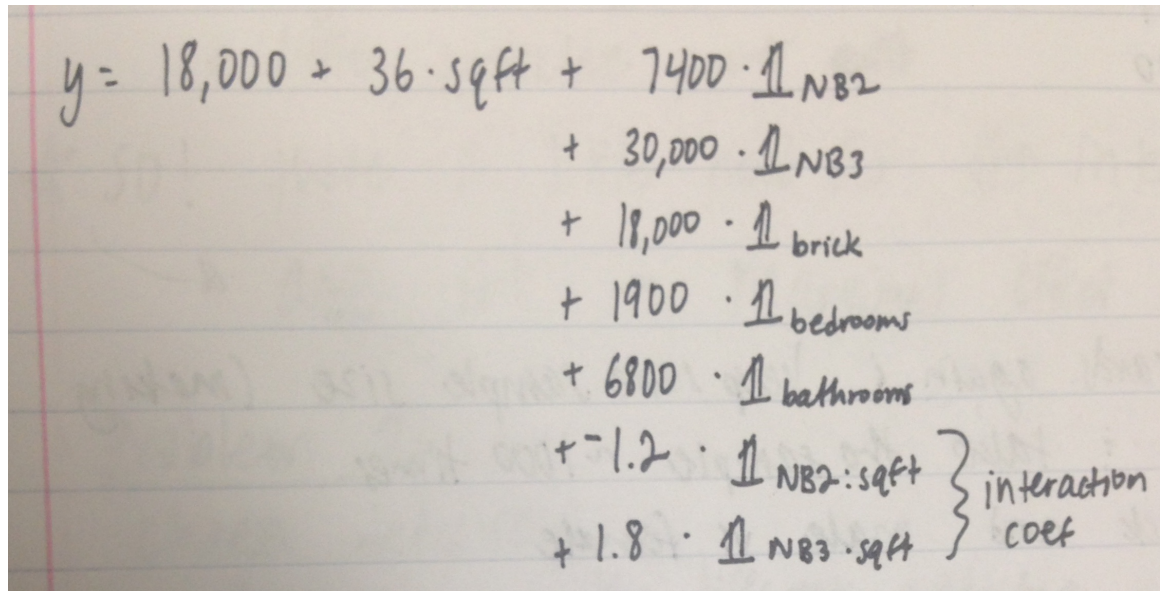 y = 18,000 + 36·sqft + 7400·𝟙 NB2
+ 30,000·𝟙 NB3
+ 18,000·𝟙 brick
+ 1900·𝟙 bedrooms
+ 6800·𝟙 bathrooms
+ -1.2·𝟙 NB2:sqft
+ 1.8·𝟙 NB3·sqft
} interaction
coef